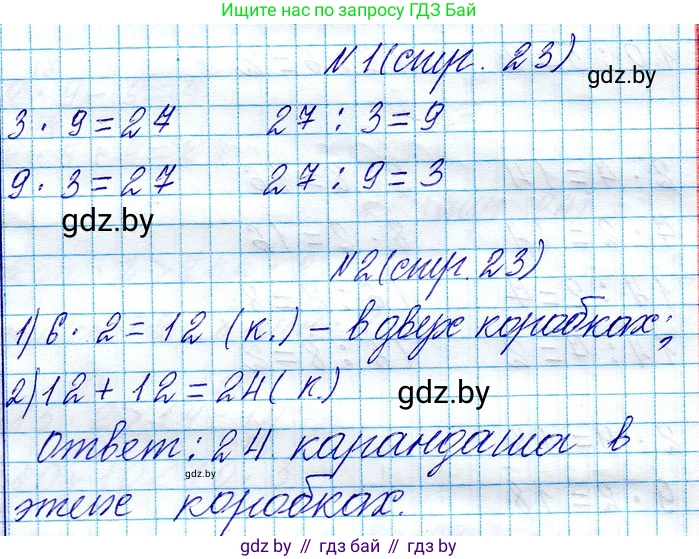 Ищите нас по запросу ГДЗ Бай
№1(стр. 23)
gdz.by
3 · 9 = 27 27 : 3 = 9
9 · 3 = 27 27 : 9 = 3
gdz.by
№2(стр. 23)
1) 6 · 2 = 12 (к.) – в двух коробках;
2) 12 + 12 = 24 (к.)
gdz.by
Ответ: 24 карандаша в
gdz.by
этих коробках.
gdz.by // гдз бай // gdz.by